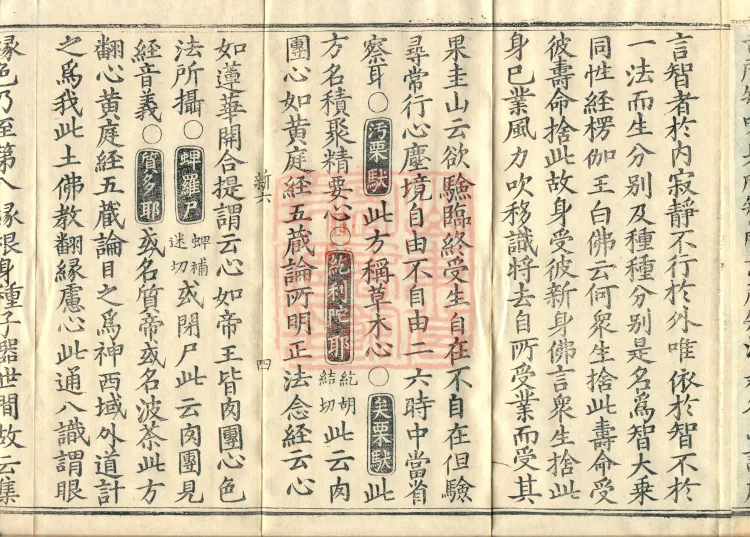 言智者於內寂靜不行於外唯依於智不於
一法而生分別及種種分別是名爲智大乘
同性經楞伽王白佛云何衆生捨此壽命受
彼壽命捨此故身受彼新身佛言衆生捨此
身已業風力吹移識將去自所受業而受其
果圭山云欲驗臨終受生自在不自在但驗
尋常行心塵境自由不自由二六時中當省
察耳○汚栗馱此方稱草木心○矣栗馱此
方名積聚精要心○紇利陀耶紇胡結切此云肉
團心如黃庭經五藏論所明正法念經云心
新六 四
如蓮華開合提謂云心如帝王皆肉團心色
法所攝○蜱羅尸蜱補迷切或閉尸此云肉團見
經音義○質多耶或名質帝或名波茶此方
翻心黃庭經五藏論目之爲神西域外道計
之爲我此土佛教翻緣慮心此通八識謂眼
緣色乃至第八緣根身種子器世間故云集